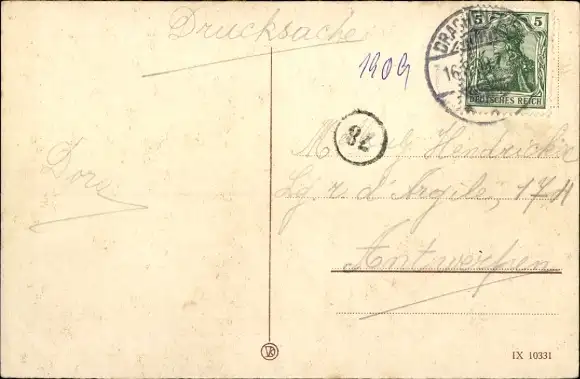 Drucksache
1909
5 5
DEUTSCHES REICH
16
78
Dora
M Hendrickx
Lg. r. d'Argile, 174
Antwerpen
IX 10331